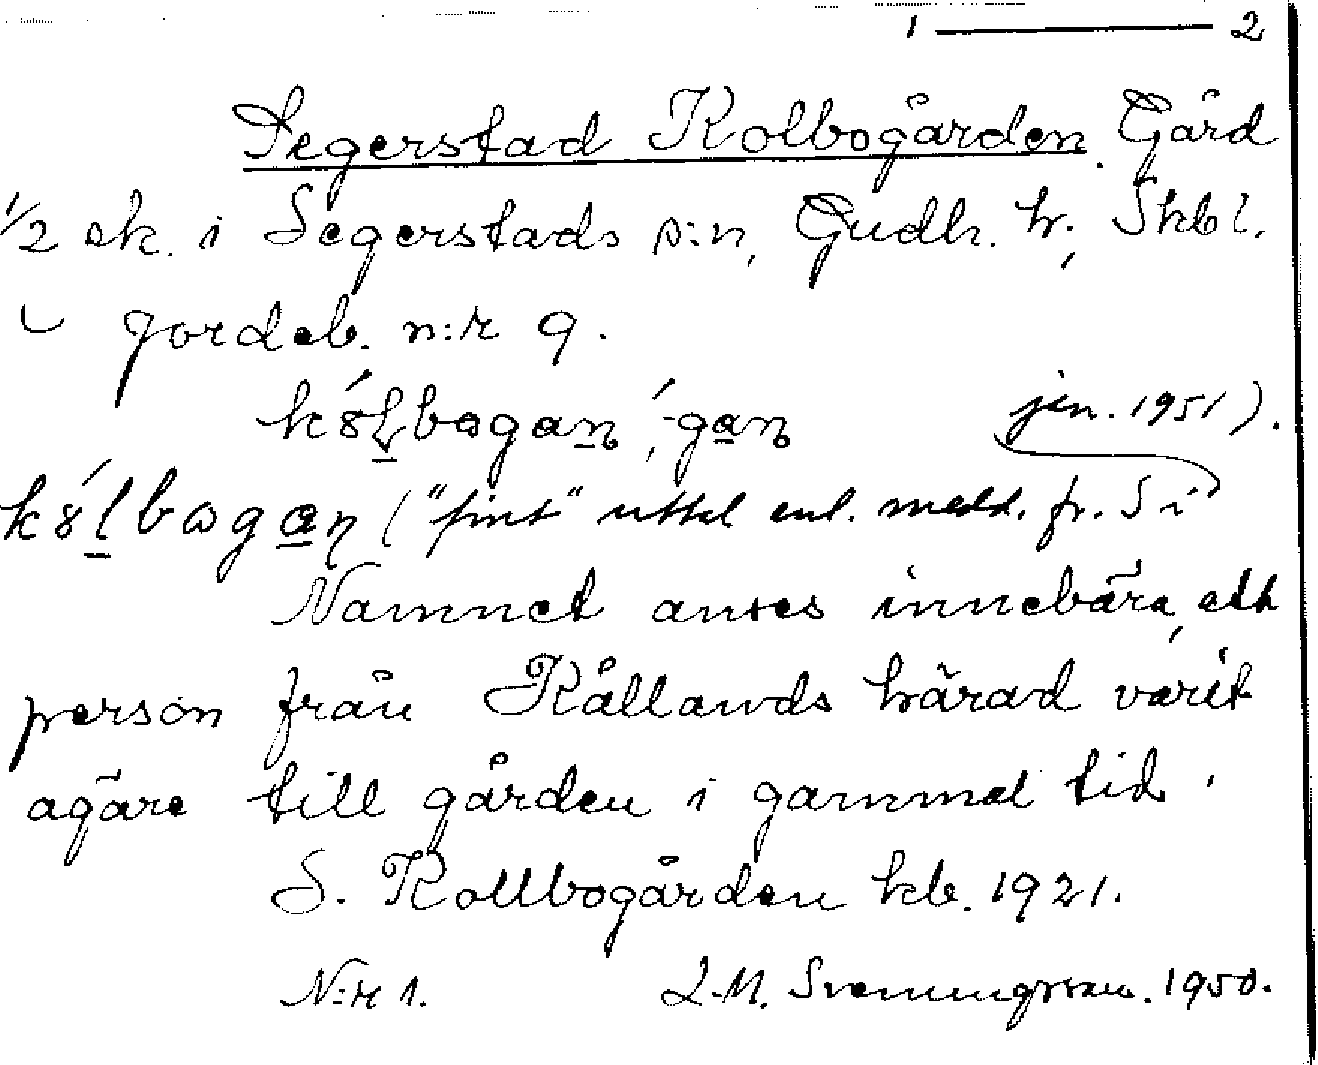 1 — 2
Segerstad Kolbogården. Gård
1/2 ek. i Segerstads s:n, Gudh. hr, Skbl.
jordeb. n:r 9.
kólbogan, -gan
jun. 1951).
kólbogan ("fint" uttal enl. medd. fr. S i
Namnet anses innebära, att
person från Kållands härad varit
ägare till gården i gammal tid.
S. Kollbogården kb. 1921.
N:r 1. L.M. Svenungsson. 1950.